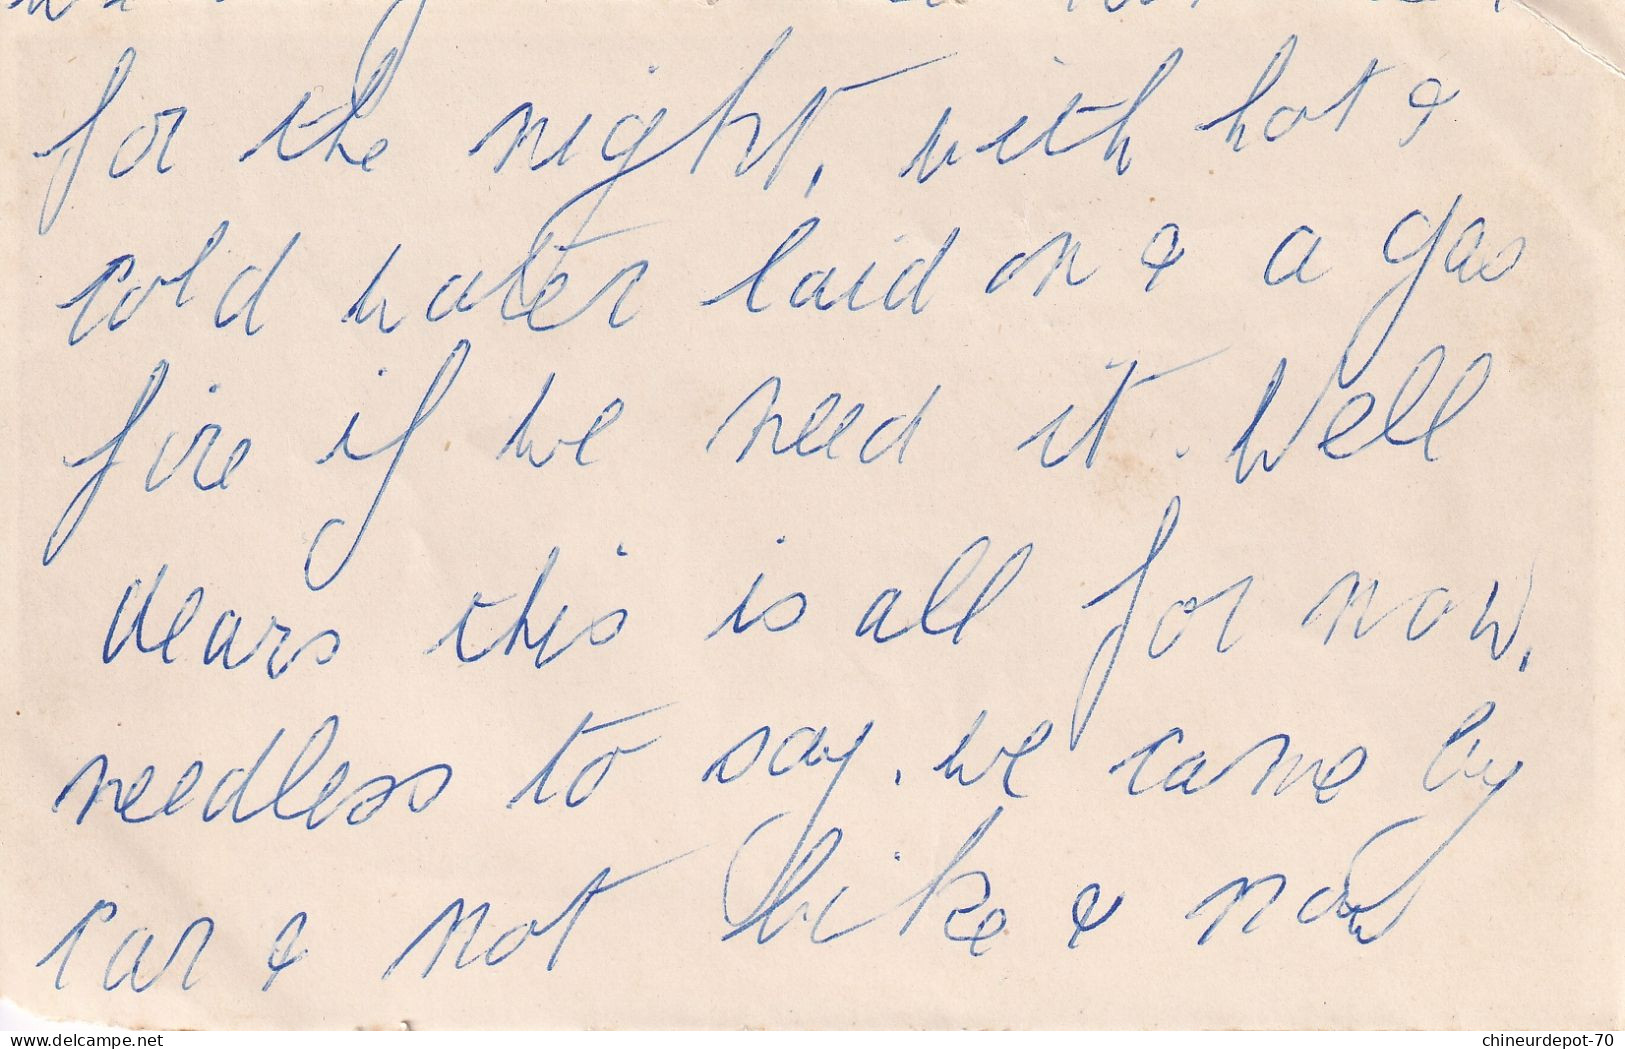 for the night, with hot &
cold water laid on & a gas
fire if we need it. Well
dears this is all for now,
needless to say. we came by
car & not bike & now
delcampe.net
chineurdepot-70